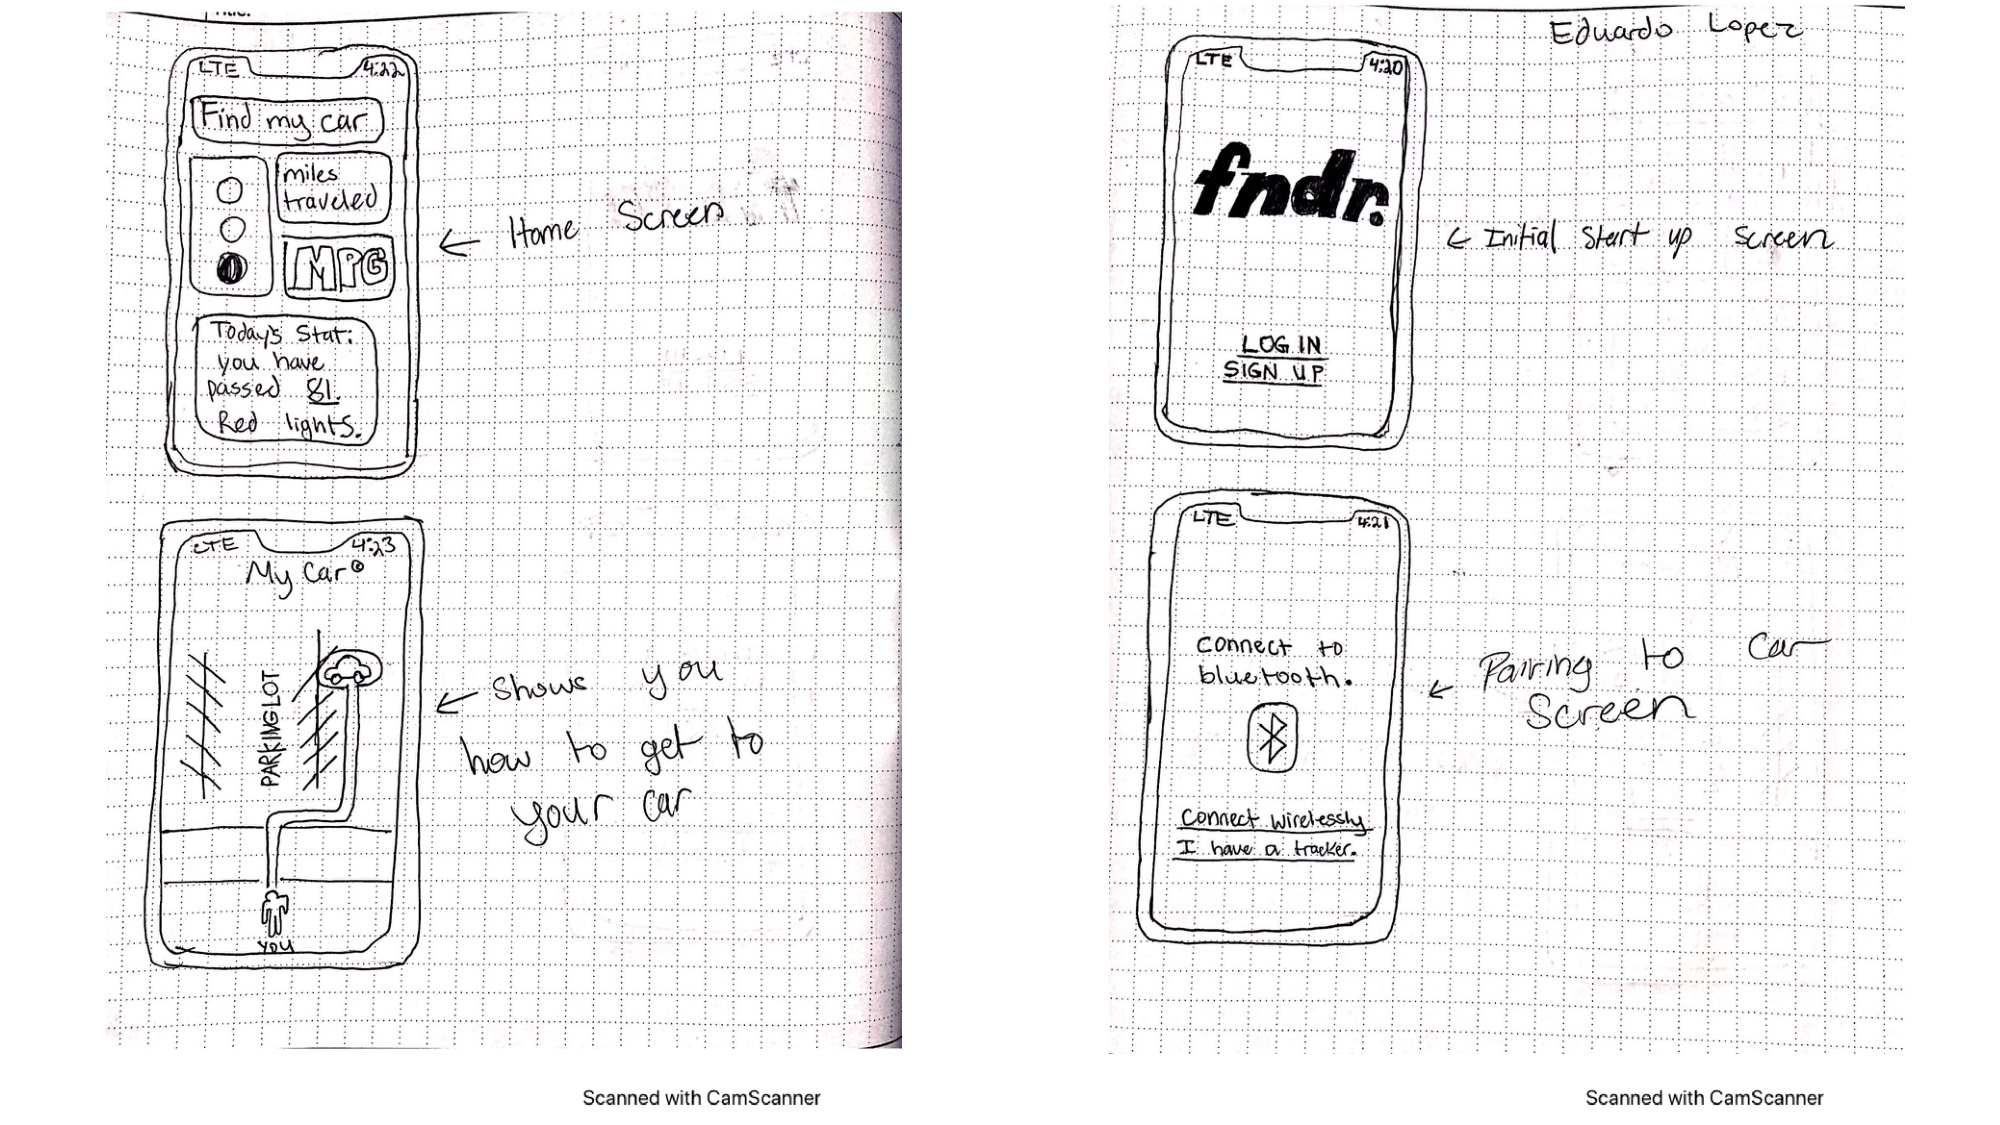 LTE
4:22
Find my car
miles
traveled
MPG
Today's Stat:
you have
passed 81.
Red lights.
← Home Screen
LTE
4:23
My Car
PARKINGLOT
YOU
← Shows you
how to get to
your car
Scanned with CamScanner
Eduardo Lopez
LTE
4:20
fndr.
LOG IN
SIGN UP
← Initial Start up Screen
LTE
4:21
Connect to
bluetooth.
Connect wirelessly
I have a tracker.
← Pairing to Car
Screen
Scanned with CamScanner